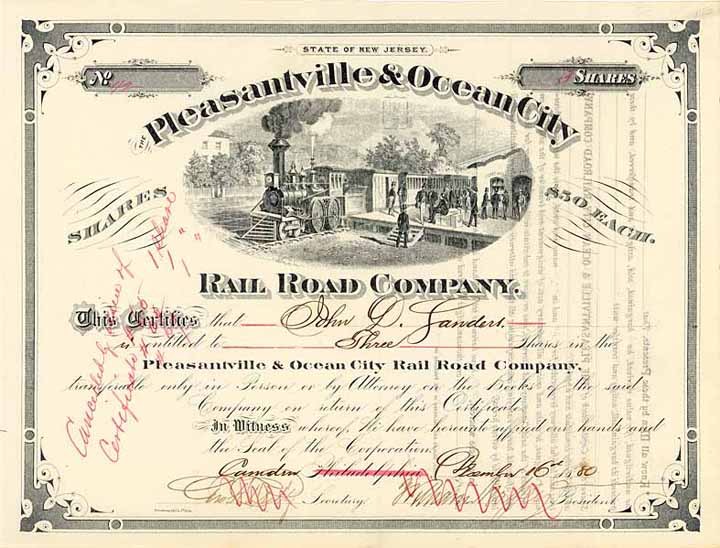 STATE OF NEW JERSEY.
No.
SHARES
THE PLEASANTVILLE & OCEAN CITY
SHARES $50 EACH.
RAIL ROAD COMPANY.
This Certifies that John D. Sanders
is entitled to Three Shares in the
Pleasantville & Ocean City Rail Road Company.
transferable only in Person or by Attorney on the Books of the said
Company on return of this Certificate
In Witness whereof, We have hereunto affixed our hands and
the Seal of the Corporation.
Camden Philadelphia, December 16th 1880
Secretary. President.
Cancelled
Certificate
1 Share
1 "
1 "